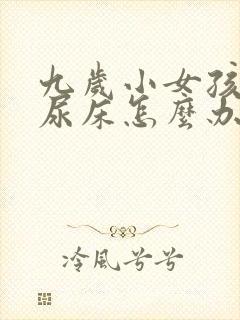 九歲小女孩
尿床怎麼办
冷風兮兮